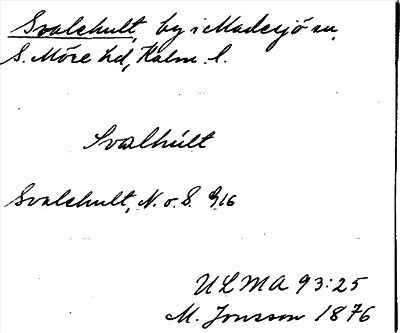 Svalehult, by i Madesjö sn,
S. Möre hd, Kalm. l.
Svalhúlt
Svalehult, N. o. S. G16
ULMA 93:25
M. Jonsson 1876